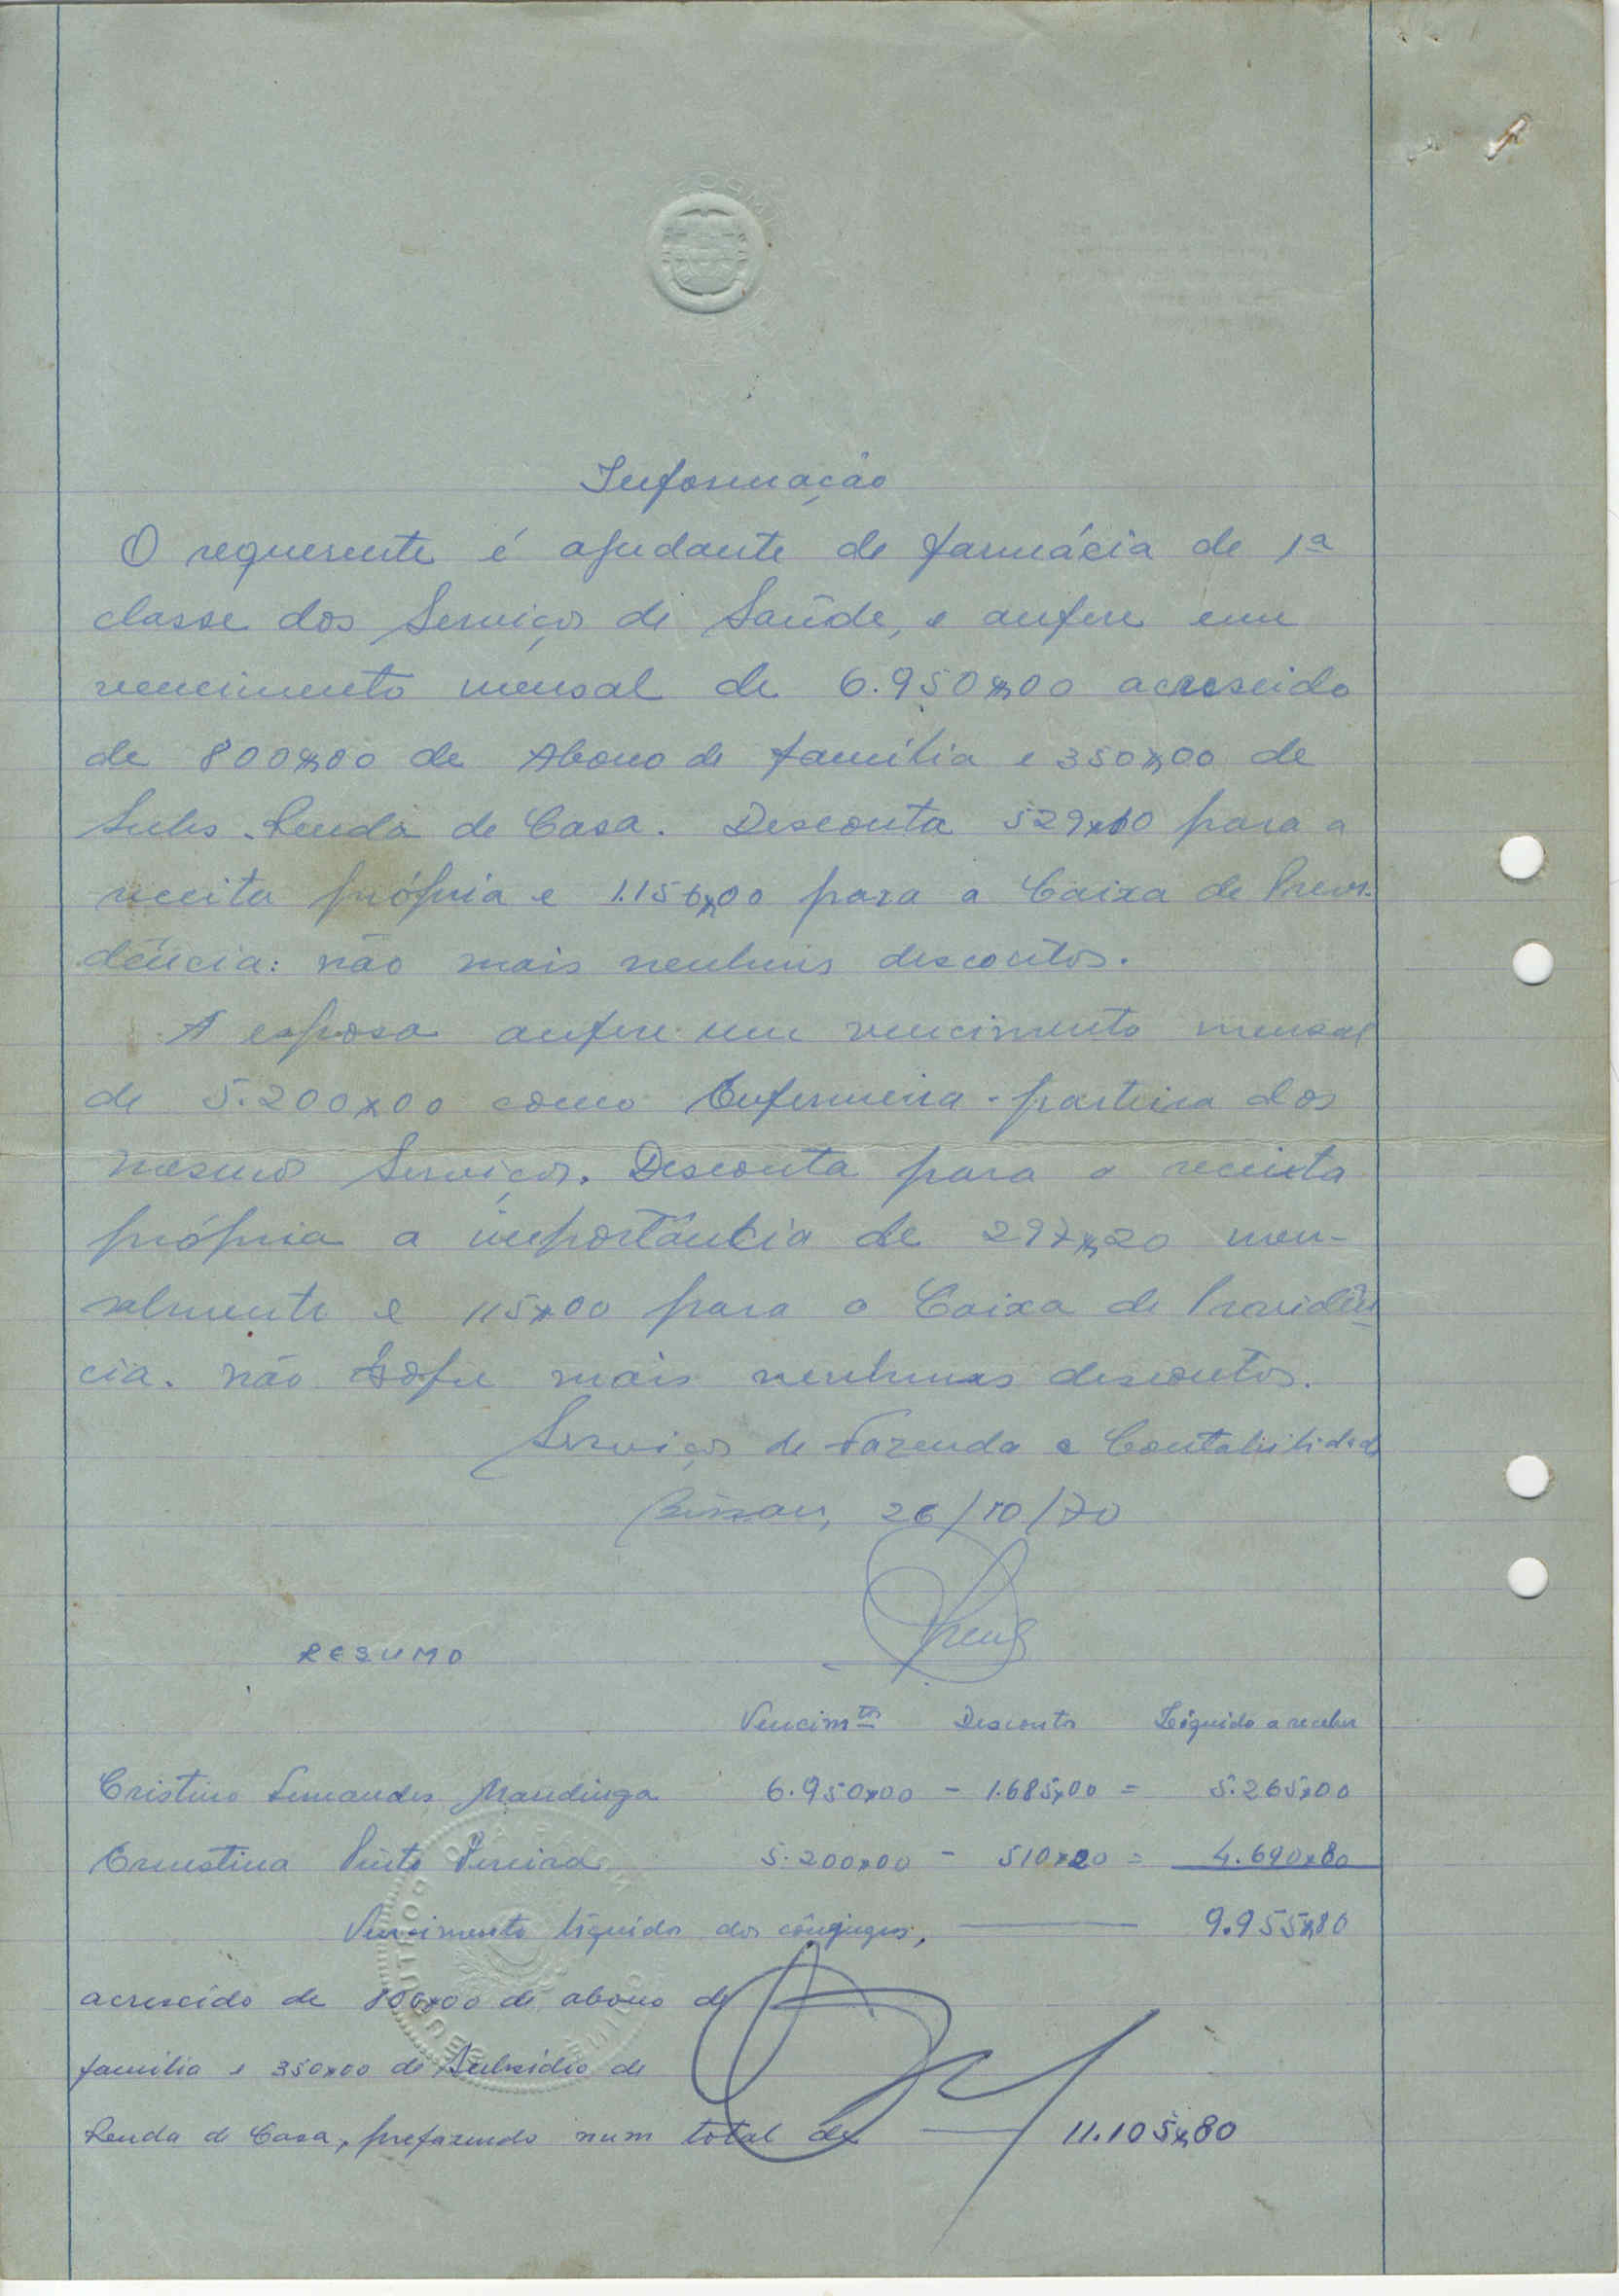 Informação
O requerente é ajudante de farmácia de 1ª
classe dos Serviços de Saúde, e aufere um
vencimento mensal de 6.950$00 acrescido
de 800$00 de Abono de família e 350$00 de
Subs. Renda de Casa. Desconta 529$00 para a
receita própria e 1.156$00 para a Caixa de Previ-
dência: não mais nenhuns descontos.
A esposa aufere um vencimento mensal
de 5.200$00 como Enfermeira-parteira dos
mesmos Serviços. Desconta para a receita
própria a importância de 297$20 men-
salmente e 115$00 para a Caixa de Previdên
cia. não sofre mais nenhuns descontos.
Serviços de Fazenda e Contabilidade
Bissau, 26/10/70
RESUMO
Vencimtos Desconto Líquido a receber
Cristino Fernandes Mandinga 6.950$00 - 1.685$00 = 5.265$00
Ernestina Pinto Pereira 5.200$00 - 510$20 = 4.690$80
Vencimento líquido dos cônjuges, 9.955$80
acrescido de 800$00 de abono de
família e 350$00 de Subsídio de
Renda de Casa, prefazendo num total de 11.105$80